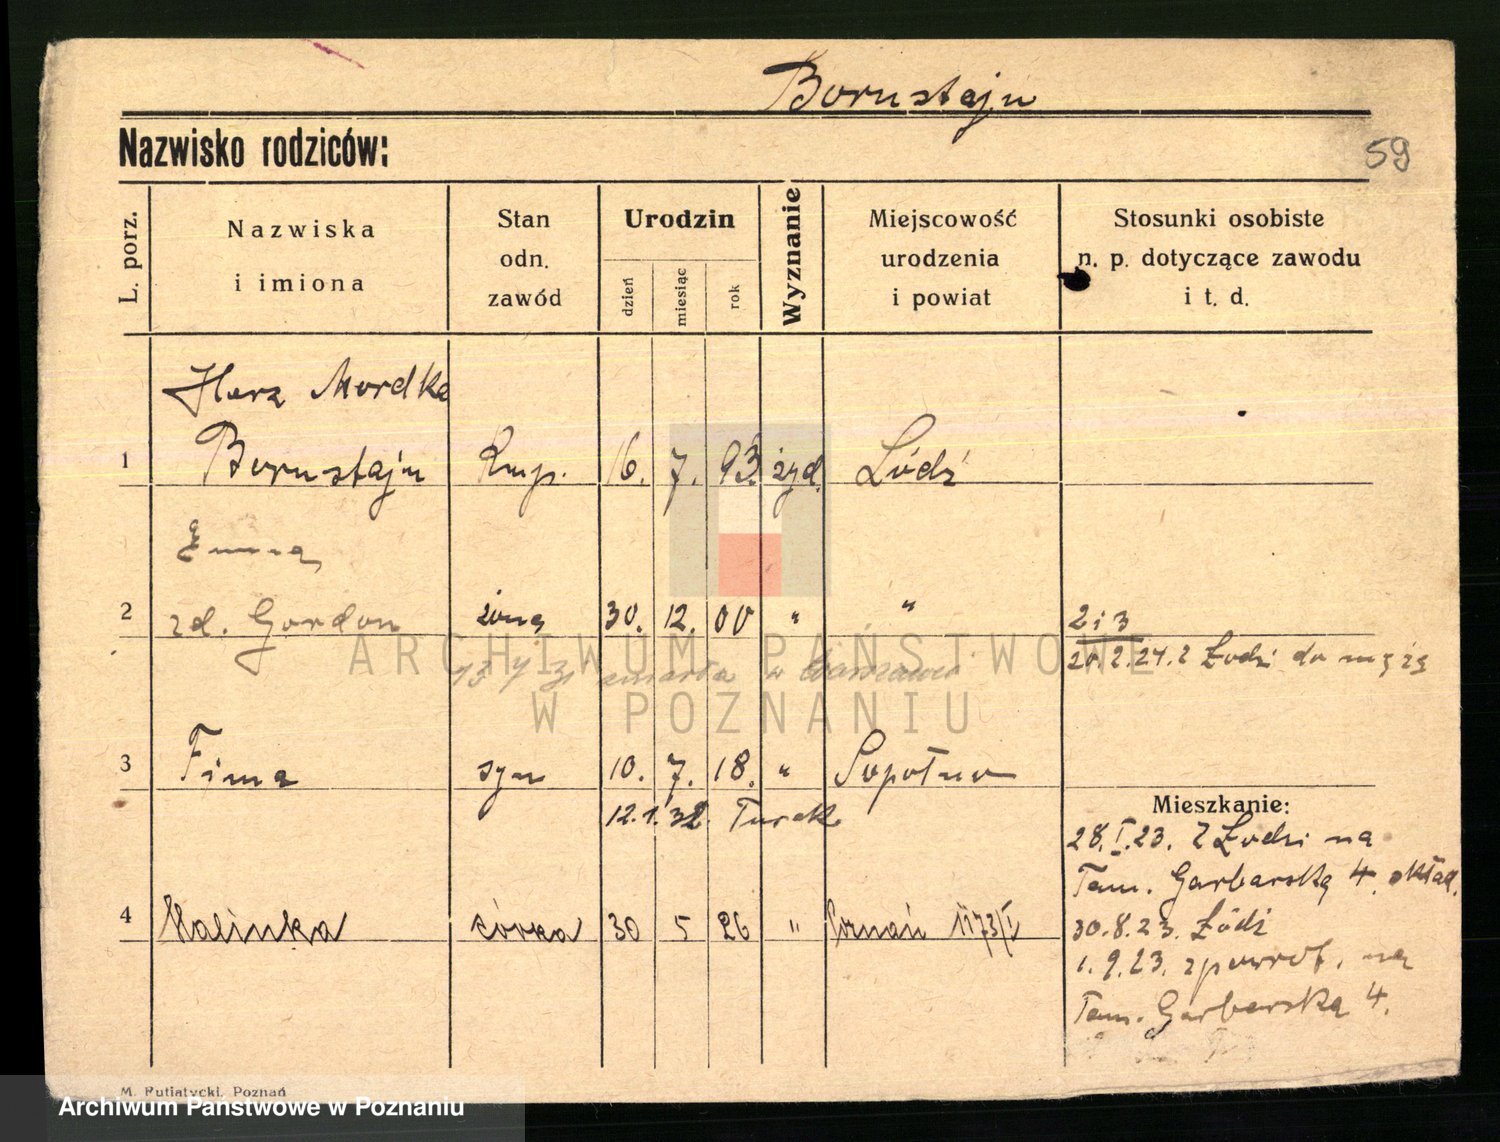 Bornstajn
Nazwisko rodziców:
59
L. porz.
Nazwiska
i imiona
Stan
odn.
zawód
Urodzin
dzień
miesiąc
rok
Wyznanie
Miejscowość
urodzenia
i powiat
Stosunki osobiste
n. p. dotyczące zawodu
i t. d.
Herz Mordka
1 Bornstajn Kup. 16. 7. 93. żyd. Łódź
Emma
2 zd. Gordon żona 30. 12. 00 " " 2 i 3
z Łodzi do męża
zmarła w Warszawie
3 Fima syn 10. 7. 18. " Sopotno
12.1.32. Turek
Mieszkanie:
28.I.23. Z Łodzi na
Tam. Garbarską 4.
4 Halinka córka 30 5 26 " Poznań 1173/I
30.8.23. Łódź
1.9.23. zpowrot. na
Tam. Garbarską 4.
M. Putiatycki, Poznań
ARCHIWUM PAŃSTWOWE
W POZNANIU
Archiwum Państwowe w Poznaniu